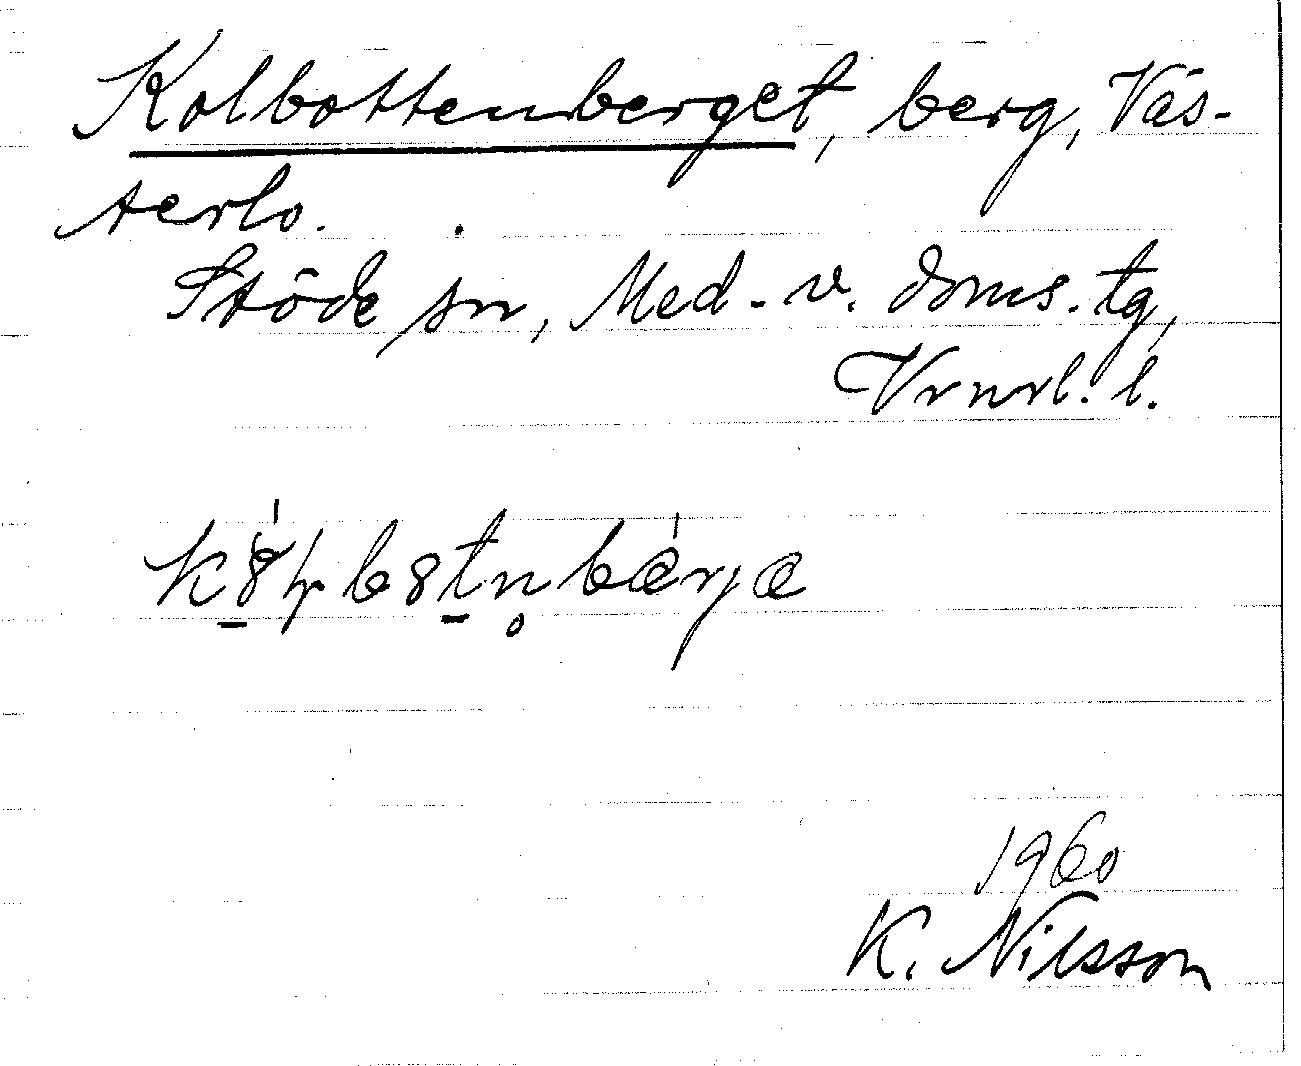 Kolbottenberget, berg, Väs-
terlo.
Stöde sn, Med-v. doms. tg,
Vrnrl. l.
1960
K. Nilsson